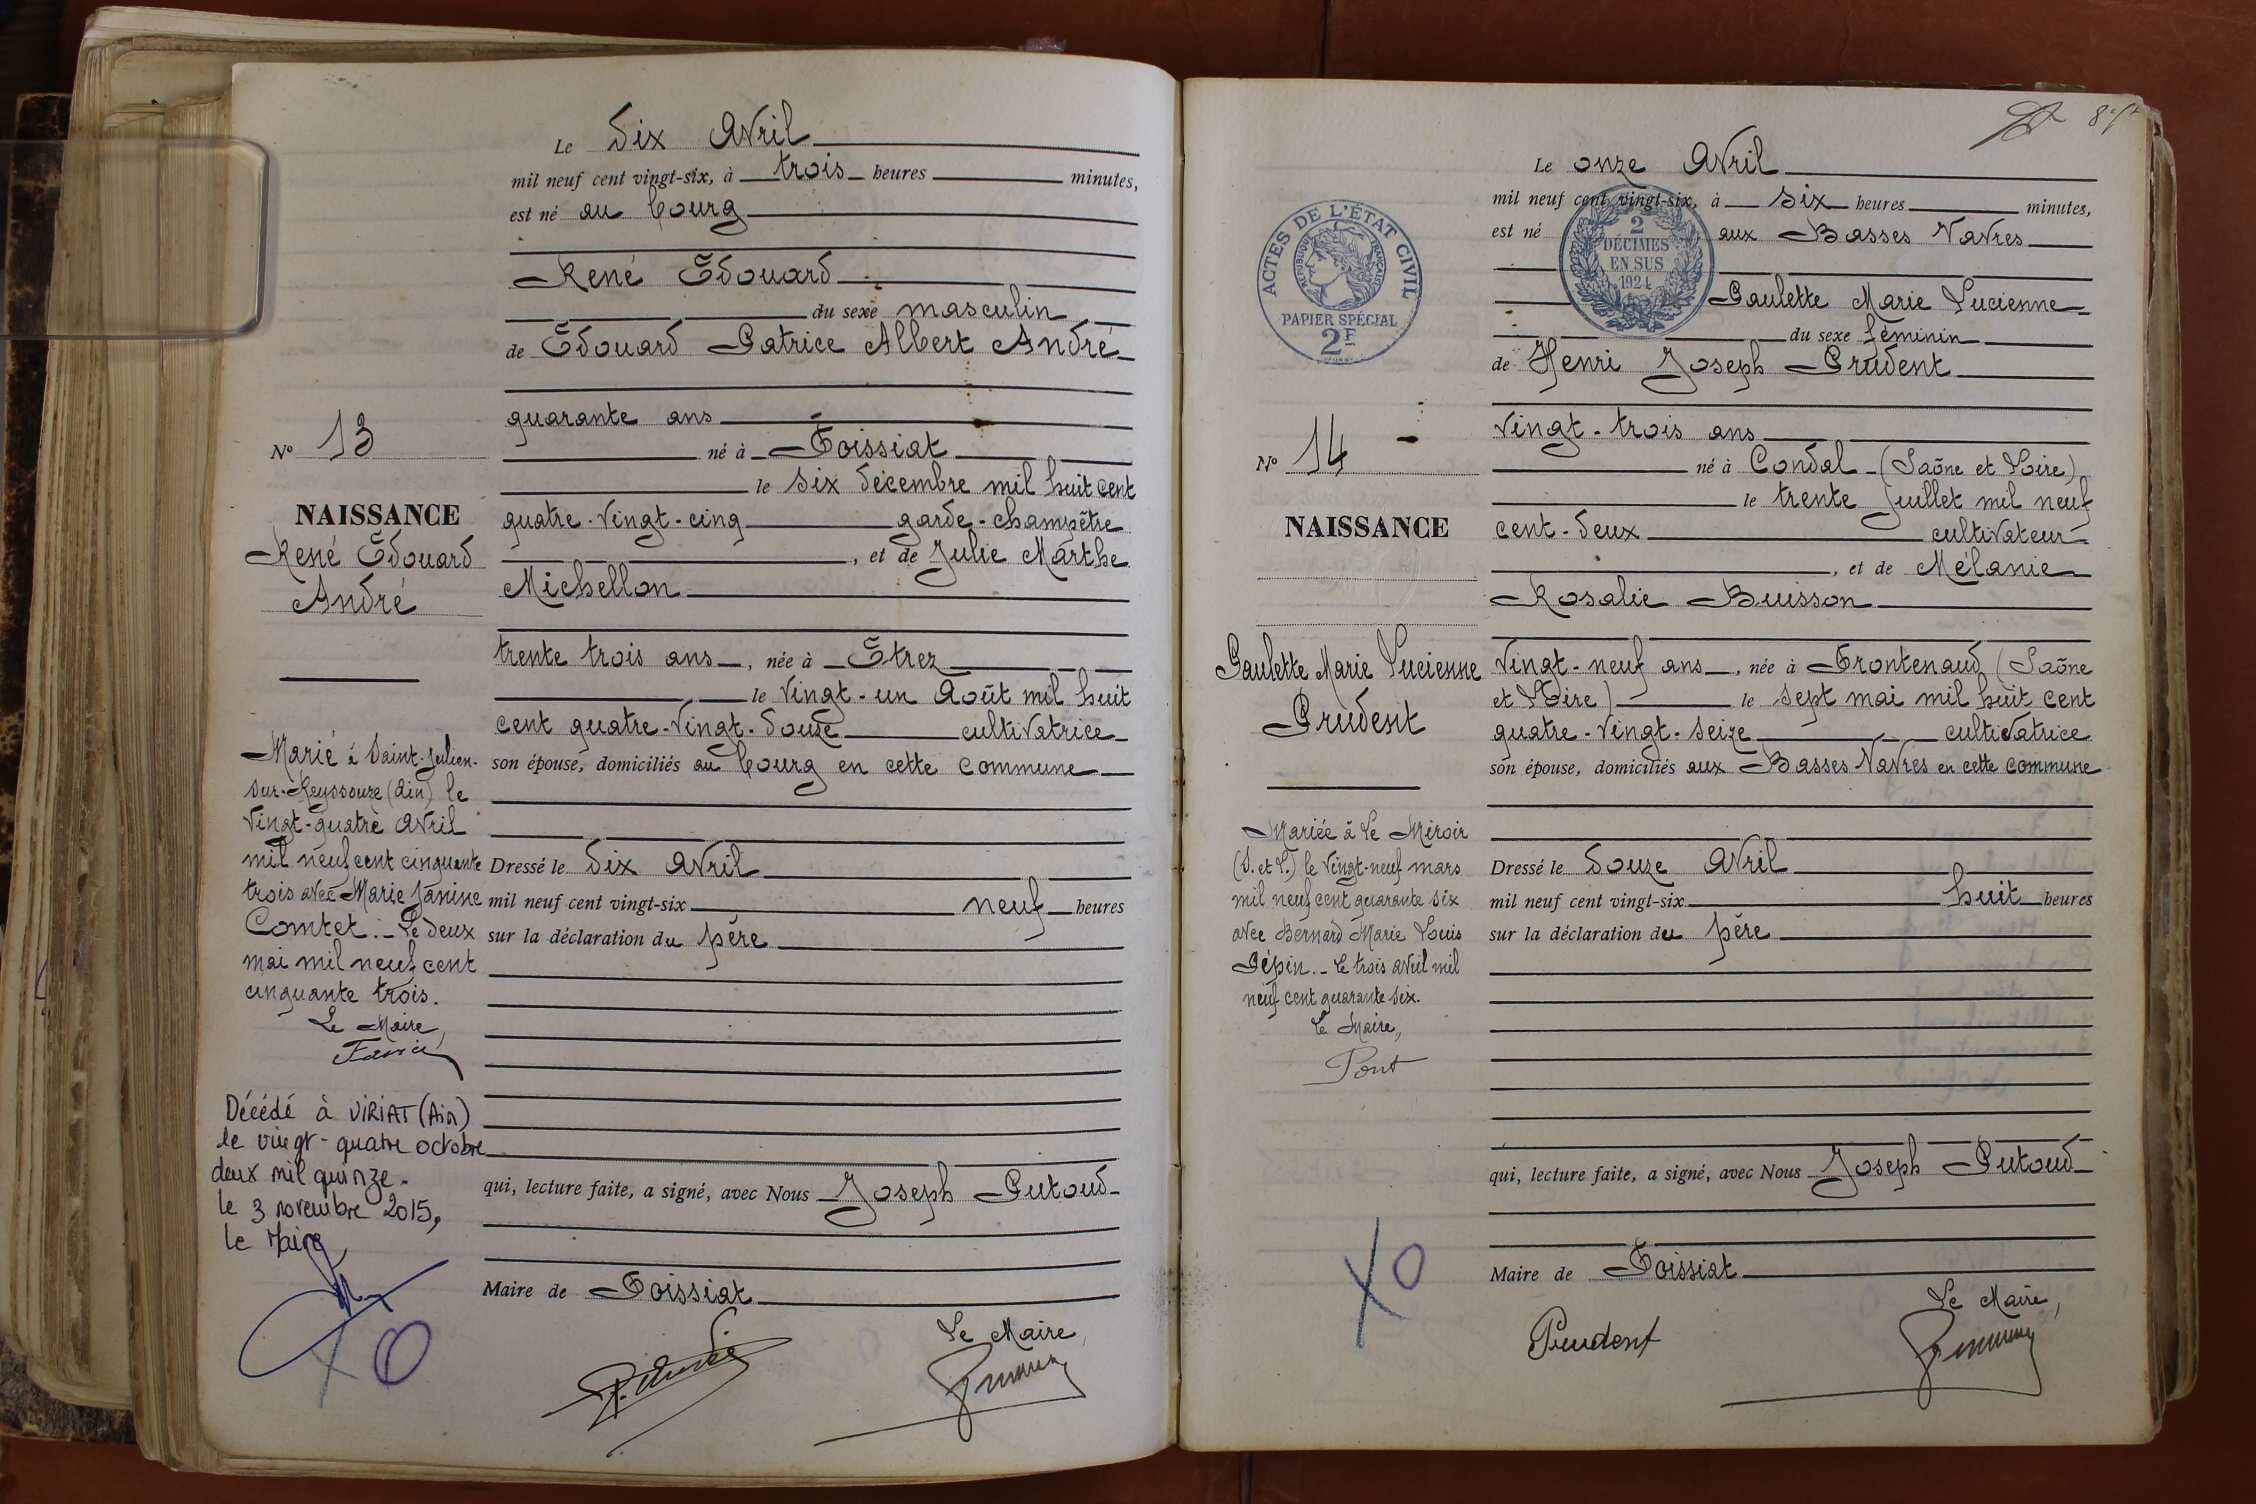 Le dix Avril
mil neuf cent vingt-six, à trois heures minutes,
est né au bourg
René Édouard
du sexe masculin
de Édouard Patrice Albert André
quarante ans
né à Foissiat
le six décembre mil huit cent
quatre-vingt-cinq garde-champêtre
, et de Julie Marthe
Michellon
trente trois ans, née à Étrez
le vingt-un Août mil huit
cent quatre-vingt-douze cultivatrice
son épouse, domiciliés au bourg en cette commune
Dressé le dix Avril
mil neuf cent vingt-six neuf heures
sur la déclaration du père
qui, lecture faite, a signé, avec Nous Joseph Putoud
Maire de Foissiat
Le Maire,
N° 13
NAISSANCE
René Édouard
André
Marié à Saint-Julien-
sur-Reyssouze (Ain) le
vingt-quatre avril
mil neuf cent cinquante
trois avec Marie Janine
Comtet. - Le deux
mai mil neuf cent
cinquante trois.
Le Maire,
Décédé à VIRIAT (Ain)
le vingt-quatre octobre
deux mil quinze.
le 3 novembre 2015,
le Maire
ACTES DE L'ÉTAT CIVIL
RÉPUBLIQUE FRANÇAISE
PAPIER SPÉCIAL
2F
2
DÉCIMES
EN SUS
1924
Le onze Avril
mil neuf cent vingt-six, à six heures minutes,
est né aux Basses Vavres
Paulette Marie Lucienne
du sexe féminin
de Henri Joseph Prudent
vingt-trois ans
né à Condal (Saône et Loire)
le trente Juillet mil neuf
cent-deux cultivateur
, et de Mélanie
Rosalie Buisson
vingt-neuf ans, née à Frontenaud (Saône
et Loire) le sept mai mil huit cent
quatre-vingt-seize cultivatrice
son épouse, domiciliés aux Basses Vavres en cette commune
Dressé le douze Avril
mil neuf cent vingt-six huit heures
sur la déclaration du père
qui, lecture faite, a signé, avec Nous Joseph Putoud
Maire de Foissiat
Le Maire,
Prudent
N° 14
NAISSANCE
Paulette Marie Lucienne
Prudent
Mariée à Le Miroir
(S. et L.) le vingt-neuf mars
mil neuf cent quarante six
avec Bernard Marie Louis
Pépin. - Le trois avril mil
neuf cent quarante six.
Le Maire,
Pont